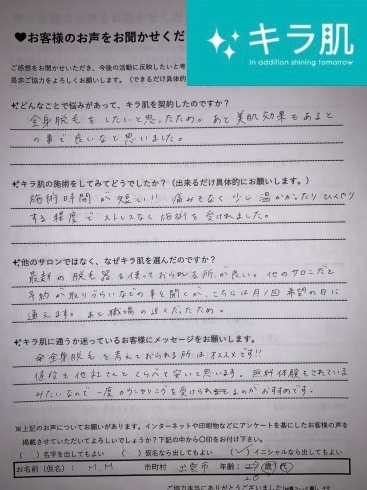 ♥お客様のお声をお聞かせくだ
キラ肌
In addition shining tomorrow
ご感想をお聞かせいただき、今後の活動に反映したいと考
是非ご協力をよろしくお願いします。（できるだけ具体的
どんなことで悩みがあって、キラ肌を契約したのですか？
全身脱毛をしたいと思ったため。あと美肌効果もあると
の事で良いなと思いました。
キラ肌の施術をしてみてどうでしたか？（出来るだけ具体的にお願いします。）
施術時間が短い!! 痛みもなく少し温かかったりひんやり
する程度でストレスなく施術を受けれました。
他のサロンではなく、なぜキラ肌を選んだのですか？
最新の脱毛器を使っておられる所が良い。他のサロンだと
予約が取りづらいなどの事を聞くが、こちらは月1回希望の日に
通えます。あと職場の近くだったため。
キラ肌に通うか迷っているお客様にメッセージをお願いします。
全身脱毛を考えておられる所はオススメです!!
値段も他社さんとくらべて安いと思います。無料体験もされている
みたいなので一度カウンセリングを受けられるのがおすすめです。
※上記のお声についてお願いがあります。インターネットや印刷物などにアンケートを基にしたお客様の声を
掲載させていただいてよろしいでしょうか？下記の中から〇印をお付け下さい。
（ ）名字を出してもよい （ ）仮名なら出してもよい （✓）イニシャルなら出してもよい
お名前（仮名）： M.M 市町村 出雲市 年齢： 20 歳 代
ご協力本当にありがとうございました